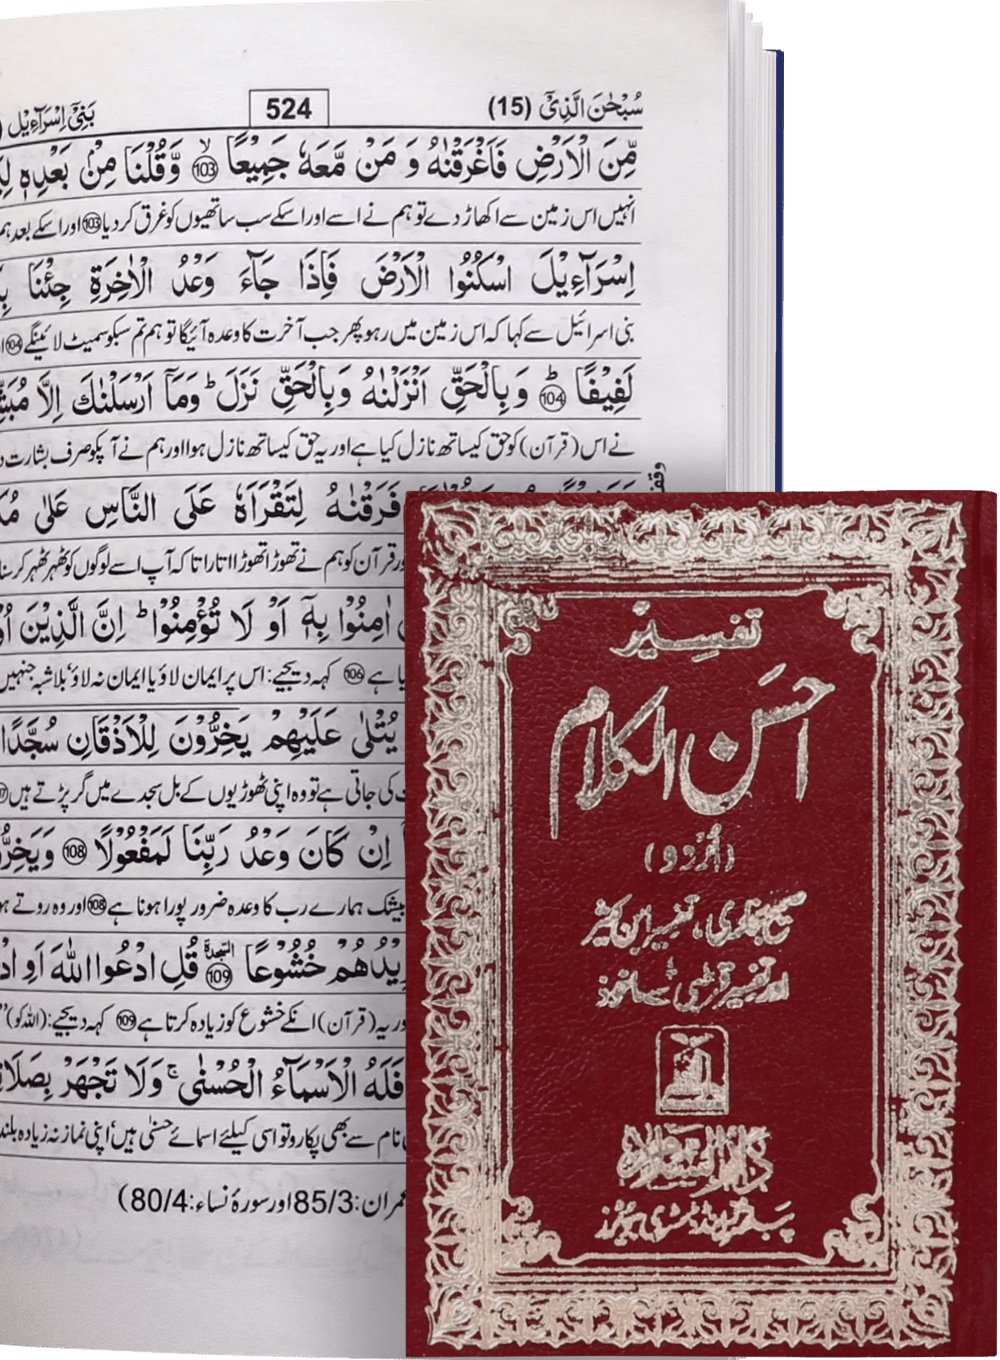 سُبْحٰنَ الَّذِیْٓ (15)
524
بَنِیْٓ اِسْرَآءِیْل
مِّنَ الْاَرْضِ فَاَغْرَقْنٰهُ وَ مَنْ مَّعَهٗ جَمِیْعًا ۙ 103 وَّقُلْنَا مِنْۢ بَعْدِهٖ
انہیں اس زمین سے اکھاڑ دے تو ہم نے اسے اور اسکے سب ساتھیوں کو غرق کر دیا 103 اور اسکے بعد ہم
اِسْرَآءِیْلَ اسْكُنُوا الْاَرْضَ فَاِذَا جَآءَ وَعْدُ الْاٰخِرَةِ جِئْنَا
بنی اسرائیل سے کہا کہ اس زمین میں رہو پھر جب آخرت کا وعدہ آئیگا تو ہم تم سبکو سمیٹ لائینگے 104
لَفِیْفًا ؕ 104 وَبِالْحَقِّ اَنْزَلْنٰهُ وَبِالْحَقِّ نَزَلَ ؕ وَمَاۤ اَرْسَلْنٰكَ اِلَّا
نے اس (قرآن) کو حق کیساتھ نازل کیا ہے اور یہ حق کیساتھ نازل ہوا اور ہم نے آپکو صرف بشارت
فَرَقْنٰهُ لِتَقْرَاَهٗ عَلَی النَّاسِ عَلٰی
قرآن کو ہم نے تھوڑا تھوڑا اتارا تاکہ آپ اسے لوگوں کو ٹھہر ٹھہر کر
اٰمِنُوْا بِهٖۤ اَوْ لَا تُؤْمِنُوْا ؕ اِنَّ الَّذِیْنَ
ہے 106 کہہ دیجیے: اس پر ایمان لاؤ یا ایمان نہ لاؤ بلاشبہ جنہیں
یُتْلٰی عَلَیْهِمْ یَخِرُّوْنَ لِلْاَذْقَانِ سُجَّدًا
کی جاتی ہے تو وہ اپنی ٹھوڑیوں کے بل سجدے میں گر پڑتے ہیں
اِنْ كَانَ وَعْدُ رَبِّنَا لَمَفْعُوْلًا 108
بیشک ہمارے رب کا وعدہ ضرور پورا ہونا ہے 108 اور وہ روتے
خُشُوْعًا السجدة 109 قُلِ ادْعُوا اللّٰهَ اَوِ
(قرآن) انکے خشوع کو زیادہ کرتا ہے 109 کہہ دیجیے: (اللہ کو)
فَلَهُ الْاَسْمَآءُ الْحُسْنٰی ۚ وَلَا تَجْهَرْ
نام سے بھی پکارو تو اسی کیلئے اسمائے حسنٰی ہیں اپنی نماز نہ زیادہ
عمران: 85/3 اور سورۂ نساء: 80/4)
تفسیر
احسن الکلام
(اُردو)
صحیح بخاری، تفسیر ابن کثیر
اور تفسیر قرطبی سے ماخوذ
دارالسلام
پبلشرز اینڈ ڈسٹری بیوٹرز